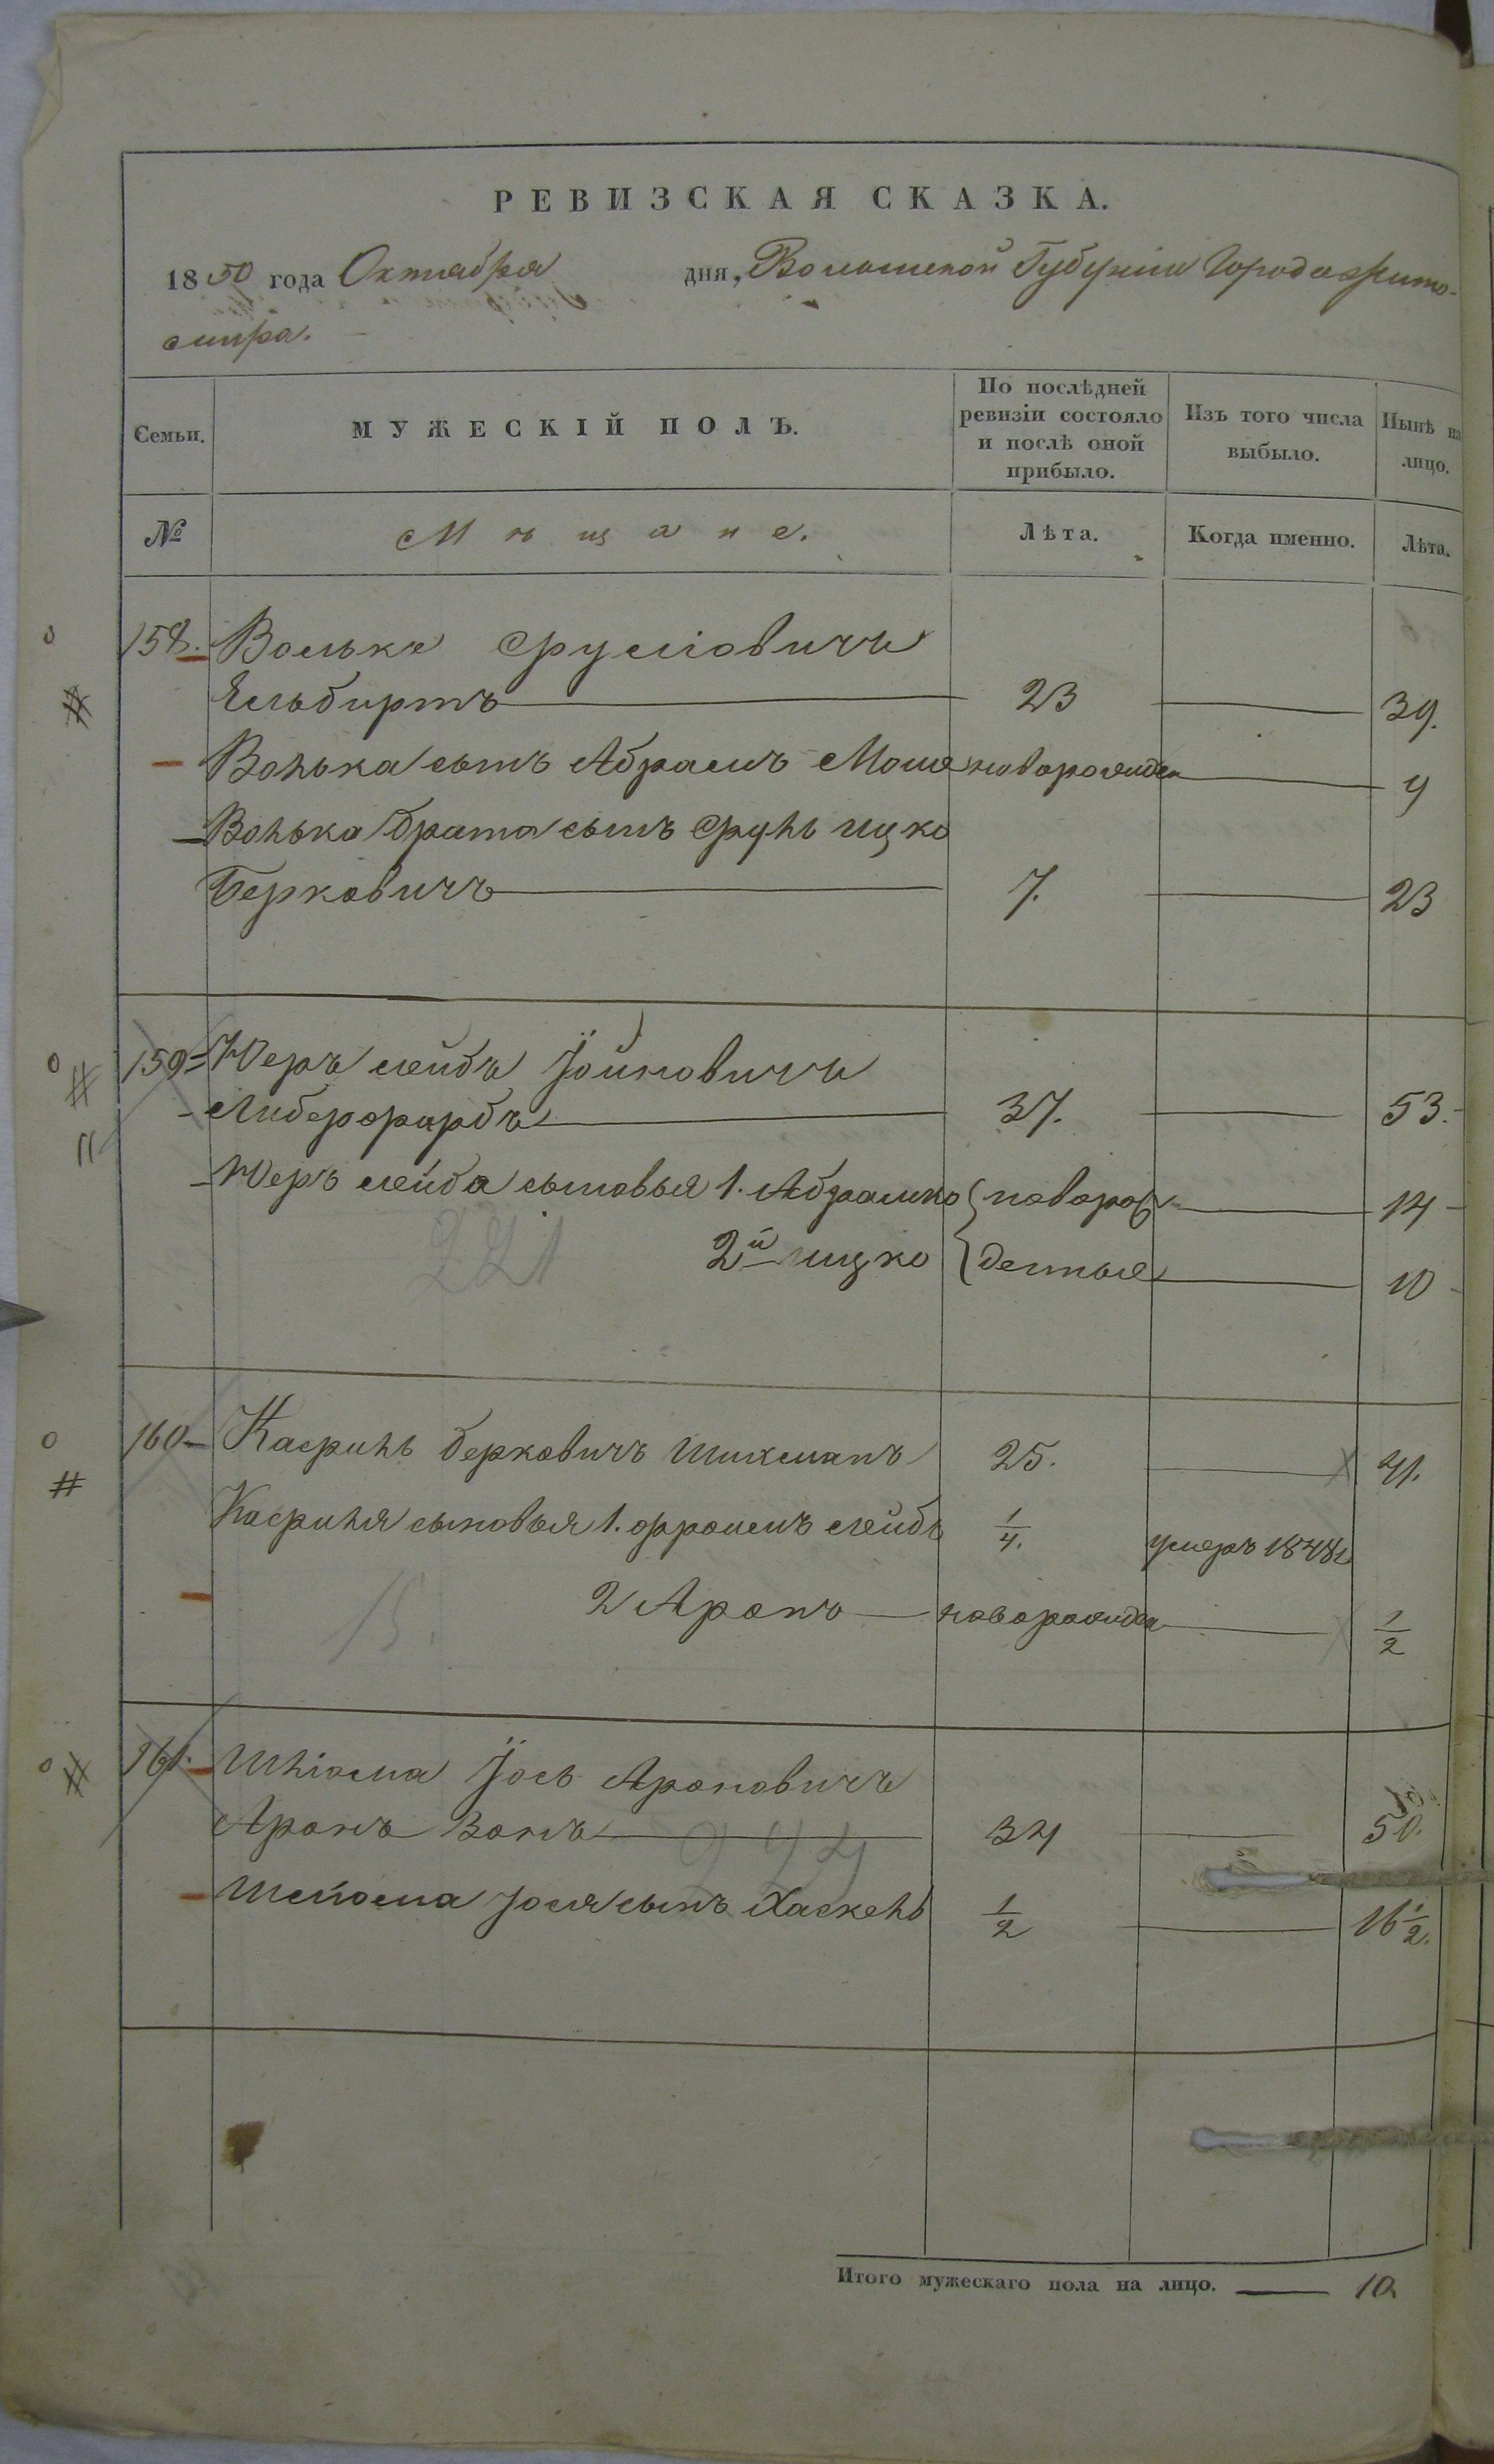 РЕВИЗСКАЯ СКАЗКА.
1850 года Октября дня, Волынской Губерніи Города Жито-
мира.
Семьи. МУЖЕСКІЙ ПОЛЪ. По послѣдней ревизіи состояло и послѣ оной прибыло. Изъ того числа выбыло. Нынѣ на лицо.
№ Мѣщане. Лѣта. Когда именно. Лѣта.
158. Волько Сруліовичъ
Гельбиртъ 23 39.
Волька сынъ Абрамъ Мошко новорожден 9
Волька брата сынъ Сруль Ицко
Берковичъ 7. 23
159 Юеръ Лейбъ Іойновичъ
Либерфарбъ 37. 53.
Юеръ Лейба сыновья 1. Абрамко новорож 14
221
2й Ицко денные 10
160 Касриль Берковичъ Шихманъ 25. 41.
Касриля сыновья 1. Фроимъ Лейбъ 1/4. умеръ 1848г
2 Аронъ новорожден 1/2
15.
161. Шліома Іось Ароновичъ
Аронъ Зонъ 34 50.
244
Шліома Іося сынъ Хаскель 1/2 16 1/2.
Итого мужескаго пола на лицо. 10.